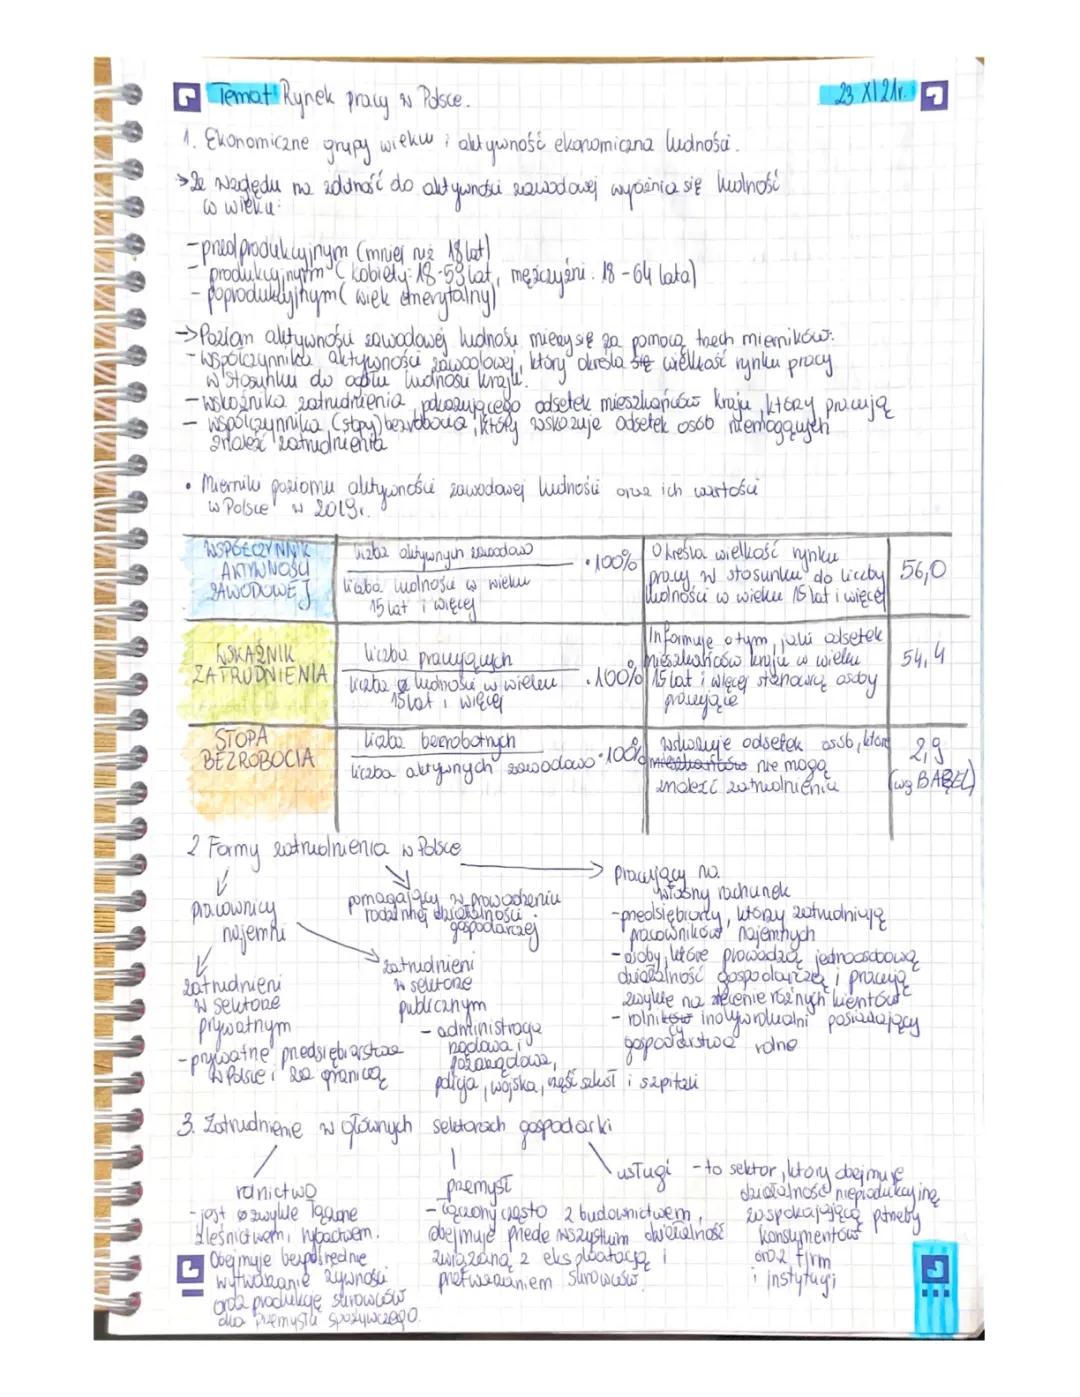 Temat: Rynek pracy w Polsce.
23 XI 21r.
1. Ekonomiczne grupy wieku i aktywność ekonomiczna ludności.
→ Ze względu na zdolność do aktywności zawodowej wyróżnia się ludność
co wieku:
- przedprodukcyjnym (mniej niż 18 lat)
- produkcyjnym (kobiety: 18-59 lat, mężczyźni: 18-64 lata)
- poprodukcyjnym (wiek emerytalny)
→ Poziom aktywności zawodowej ludności mierzy się za pomocą trzech mierników:
- współczynnika aktywności zawodowej, który określa się wielkość rynku pracy
w stosunku do ogółu ludności kraju.
- wskaźnika zatrudnienia pokazującego odsetek mieszkańców kraju, którzy pracują
- współczynnika (stopy) bezrobocia, który wskazuje odsetek osób niemogących
znaleźć zatrudnienia
• Mierniki poziomu aktywności zawodowej ludności oraz ich wartości
w Polsce w 2019r.
WSPÓŁCZYNNIK
AKTYWNOŚCI
ZAWODOWEJ
liczba aktywnych zawodowo
liczba ludności w wieku
15 lat i więcej
·100%
Określa wielkość rynku
pracy w stosunku do liczby
ludności w wieku 15 lat i więcej
56,0
WSKAŹNIK
ZATRUDNIENIA
liczba pracujących
liczba ludności w wieku
15 lat i więcej
·100%
Informuje o tym, jaki odsetek
mieszkańców kraju w wieku
15 lat i więcej stanowią osoby
pracujące
54,4
STOPA
BEZROBOCIA
liczba bezrobotnych
liczba aktywnych zawodowo
·100%
wskazuje odsetek osób, które
mieszkańców nie mogą
znaleźć zatrudnienia
2,9
(wg BAEL)
2 Formy zatrudnienia w Polsce
pracownicy
najemni
pomagający w prowadzeniu
rodzinnej działalności
gospodarczej
pracujący na
własny rachunek
- przedsiębiorcy, którzy zatrudniają
pracowników najemnych
- osoby, które prowadzą jednoosobową
działalność gospodarczą i pracują
zwykle na zlecenie różnych klientów
- rolnicy indywidualni posiadający
gospodarstwa rolne
zatrudnieni
w sektorze
prywatnym
- prywatne przedsiębiorstwa
w Polsce i za granicą
zatrudnieni
w sektorze
publicznym
- administracja
rządowa i
pozarządowa,
policja, wojska, część szkół i szpitali
3. Zatrudnienie w głównych sektorach gospodarki
rolnictwo
- jest zwykle łączone
z leśnictwem i rybactwem.
Obejmuje bezpośrednie
wytwarzanie żywności
oraz produkcję surowców
dla przemysłu spożywczego.
przemysł
- łączony często z budownictwem,
obejmuje przede wszystkim działalność
związaną z eksploatacją i
przetwarzaniem surowców.
usługi - to sektor, który obejmuje
działalność nieprodukcyjną
zaspokajającą potrzeby
konsumentów
oraz firm
i instytucji